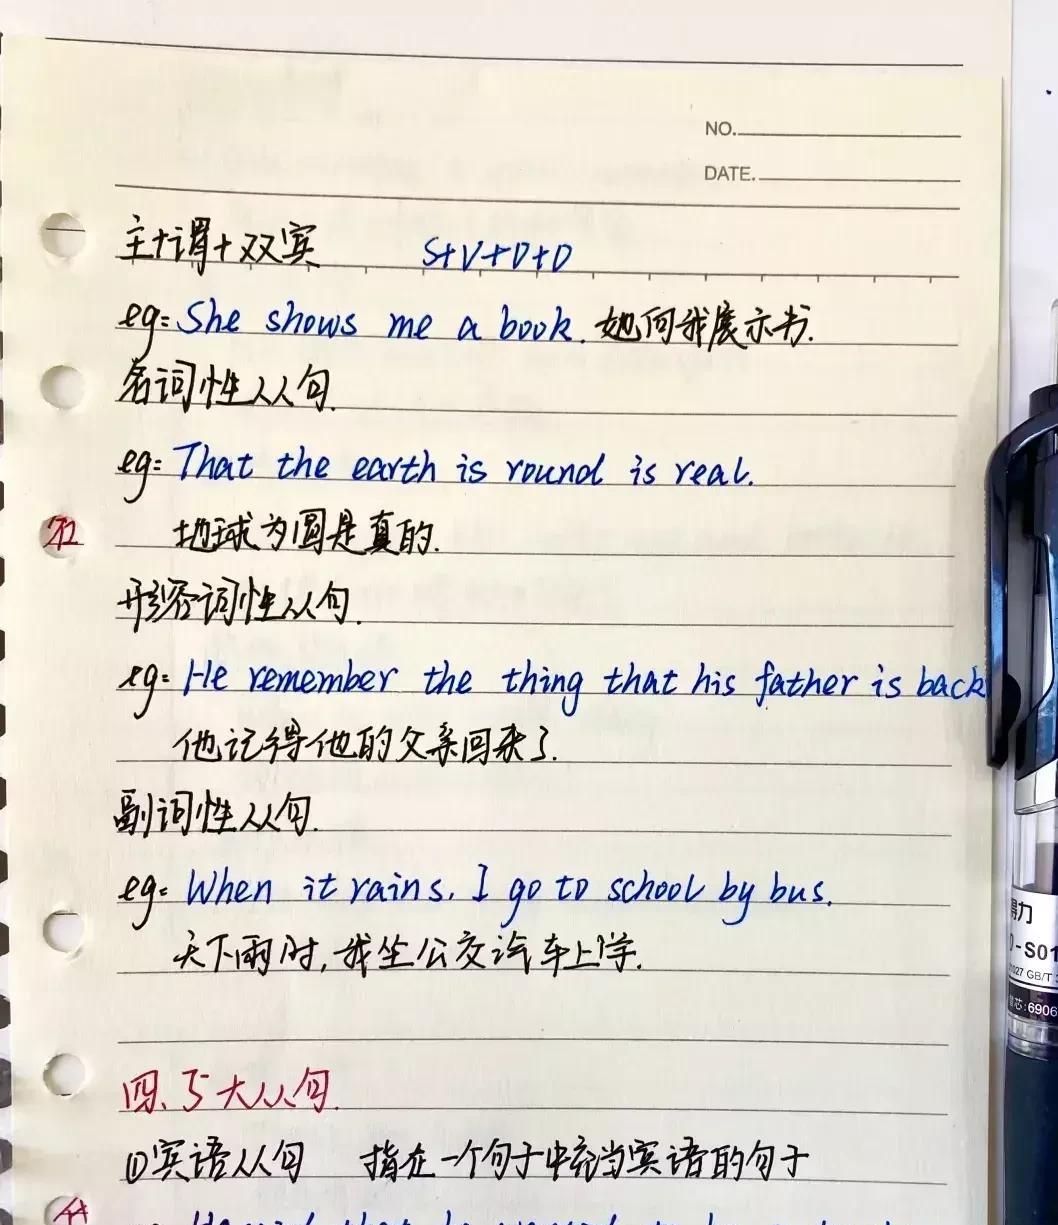 NO.
DATE.
主+谓+双宾 S+V+O+O
eg: She shows me a book. 她向我展示书.
名词性从句.
eg: That the earth is round is real.
地球为圆是真的.
形容词性从句.
eg: He remember the thing that his father is back
他记得他的父亲回来了.
副词性从句.
eg: When it rains. I go to school by bus.
天下雨时,我坐公交汽车上学.
四、5大从句.
①宾语从句 指在一个句子中充当宾语的句子
得力
-S01
GB/T
:6906